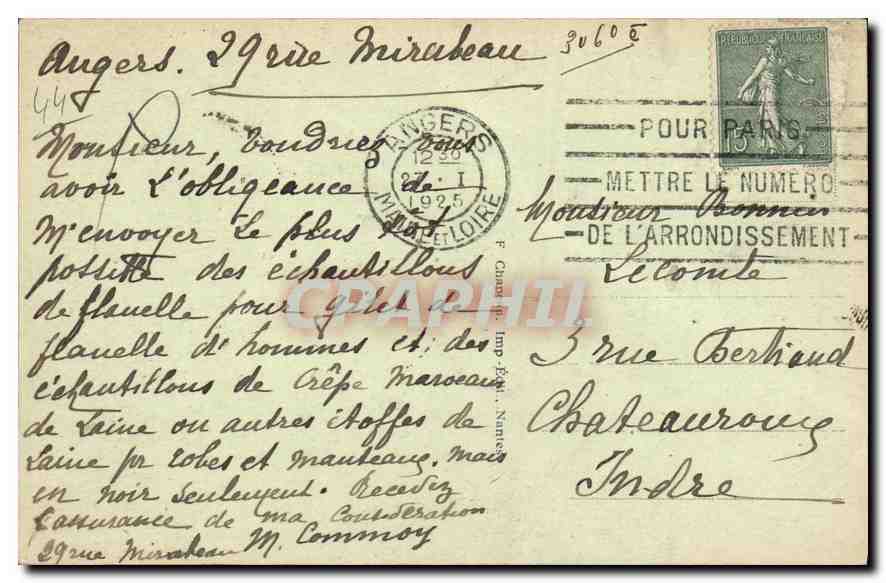 Angers. 29 rue Mirabeau
3060
44
Monsieur, Voudriez Vous
avoir L'obligeance de
M'envoyer Le plus tôt
possible des échantillons
de flanelle pour gilet de
flanelle d'hommes et des
échantillons de Crêpe Marocain
de Laine ou autres étoffes de
Laine pr robes et manteaux. mais
en noir seulement. Recevez
l'assurance de ma Considération
29 rue Mirabeau M. Commoy
ANGERS
12 30
27 · I
1925
MAINE ET LOIRE
REPUBLIQUE FRANÇAISE
15
POUR PARIS
METTRE LE NUMÉRO
DE L'ARRONDISSEMENT
Monsieur Bonnin
Lecomte
3 rue Bertrand
Chateauroux
Indre
Imp.-Edit., Nantes
CPAPHIL